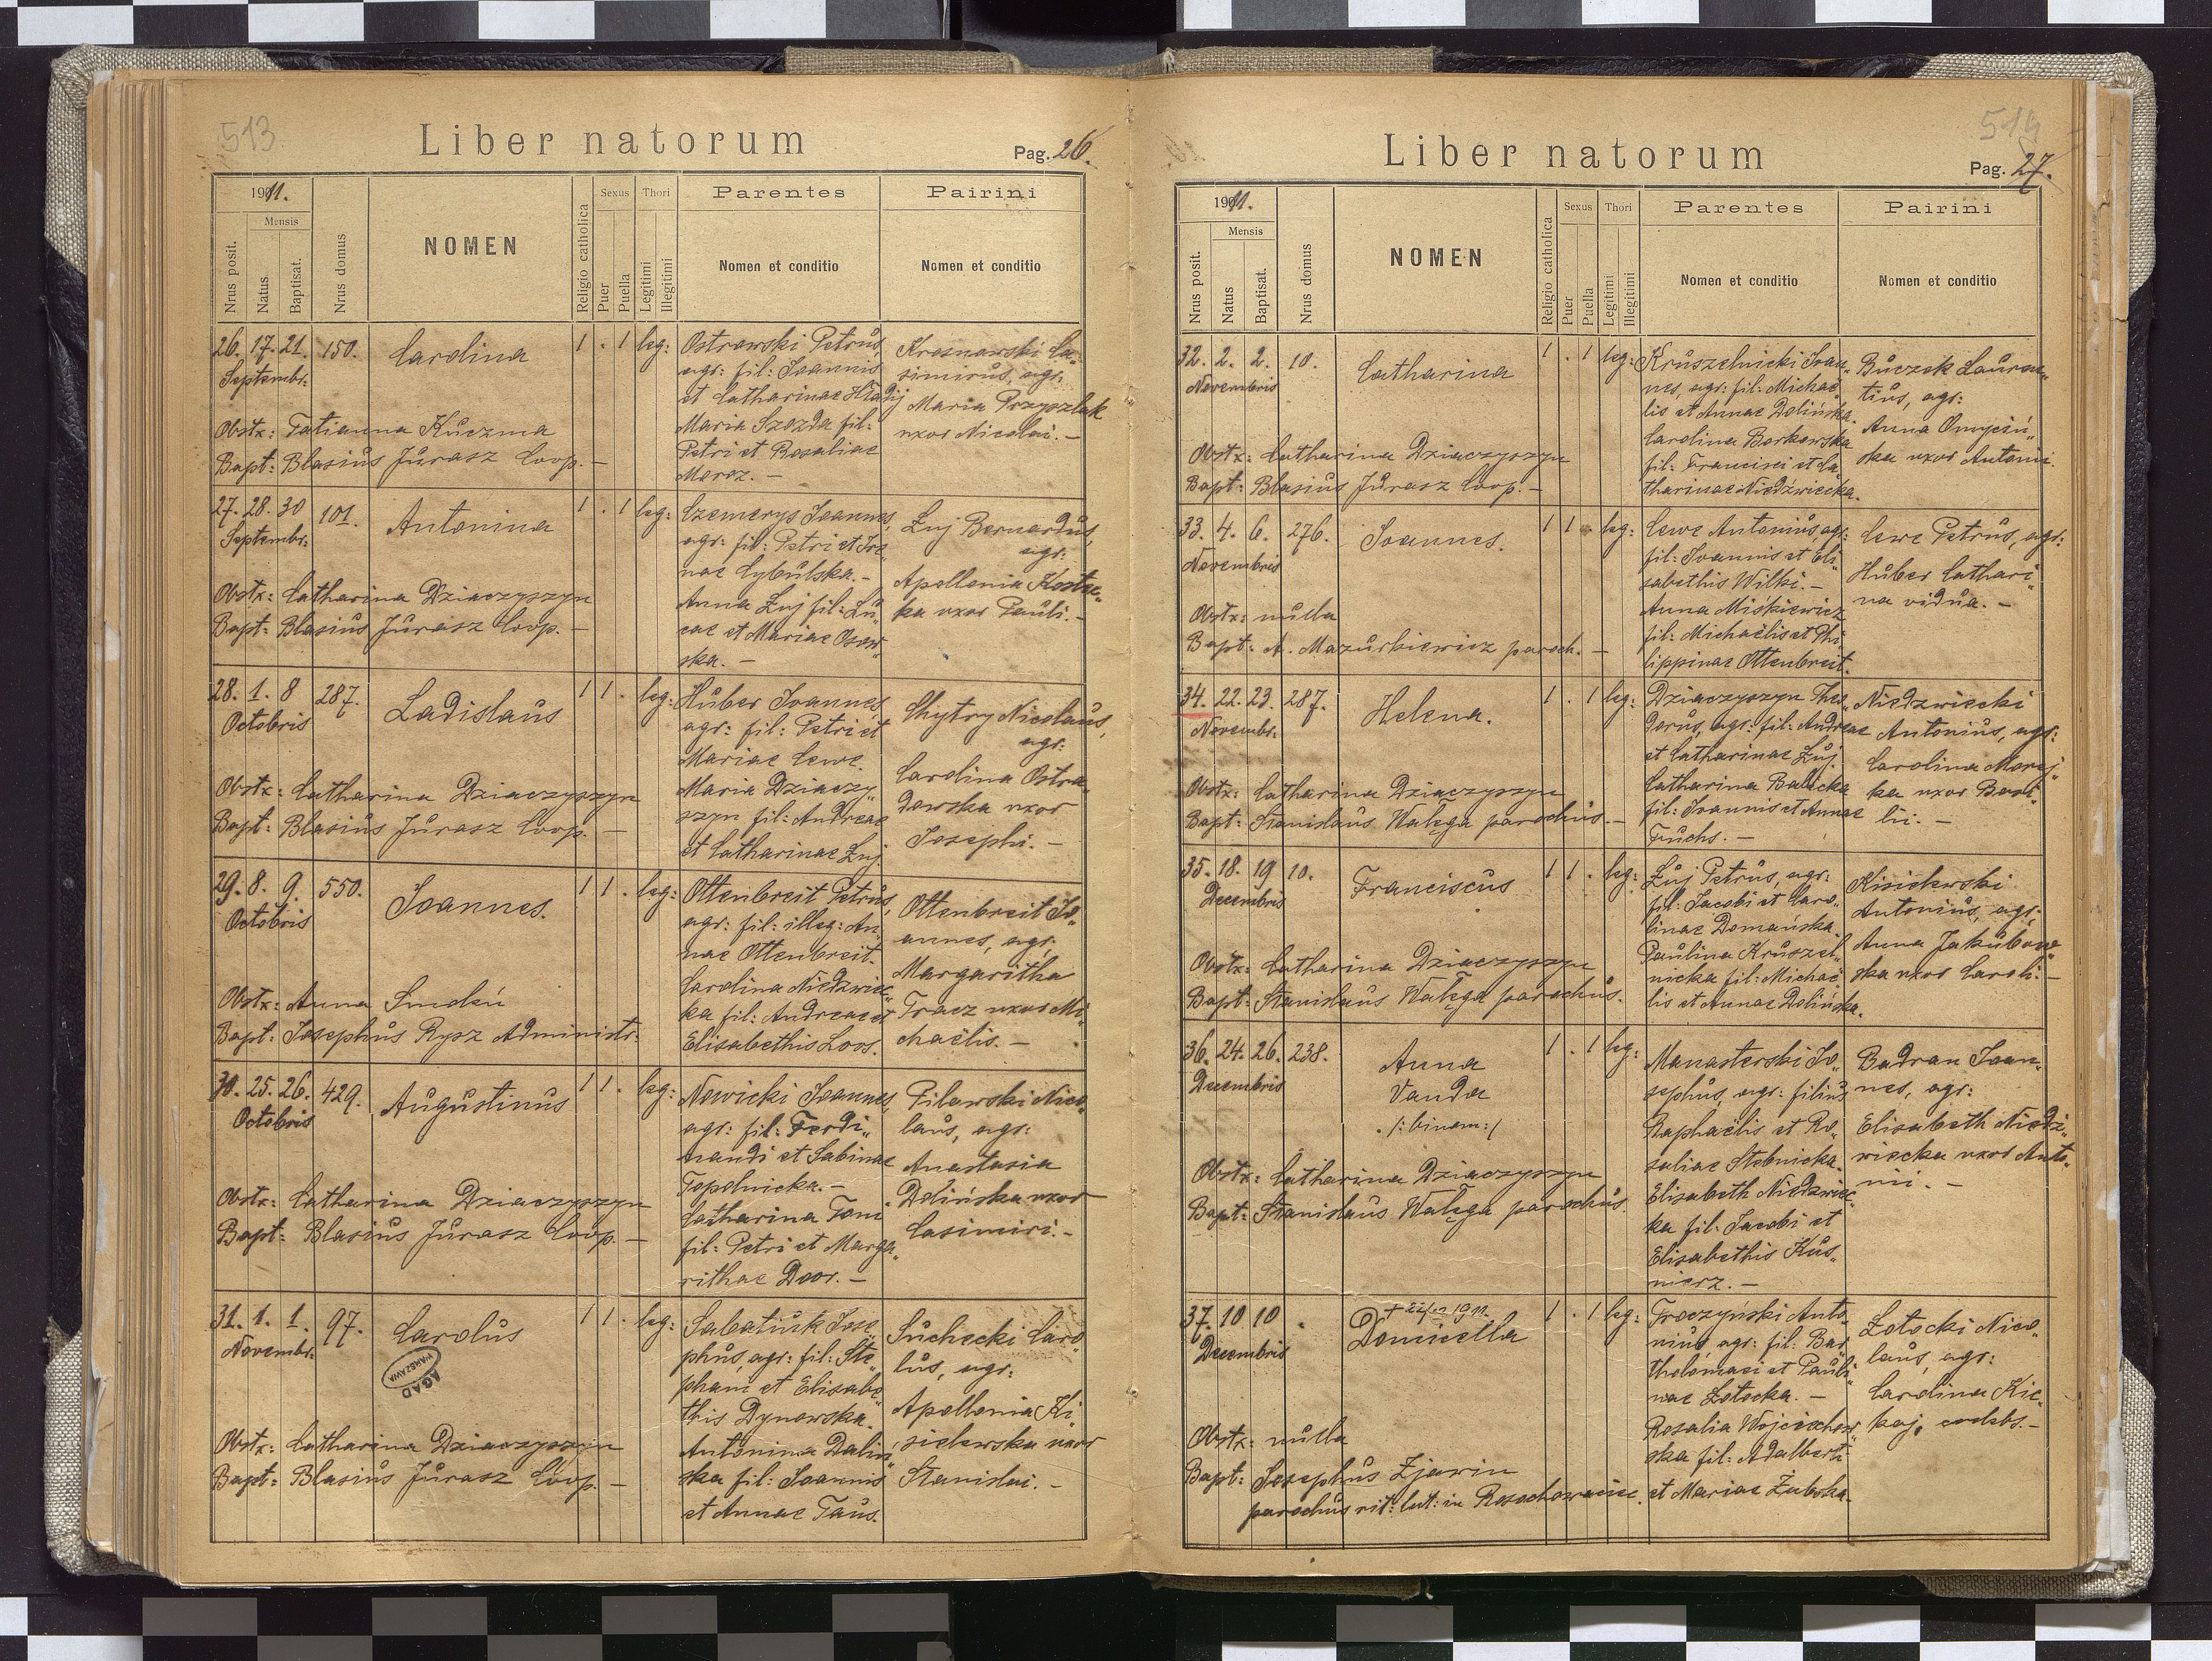 513
Liber natorum
Pag. 26.
1911.
Mensis
Nrus posit.
Natus
Baptisat.
Nrus domus
NOMEN
Religio catholica
Sexus
Puer
Puella
Thori
Legitimi
Illegitimi
Parentes
Nomen et conditio
Pairini
Nomen et conditio
26. 17. 21. 150. Carolina 1 . 1 leg:
Septembr:
Obstx: Tatianna Kuczma
Bapt: Blasius Jurasz Coop. –
Ostrowski Petrus,
agr: fil: Joannis
et Catharinae Hladij
Maria Szozda fil:
Petri et Rosaliae
Moroz. –
Krasnowski Ca„
simirus, agr:
Maria Przyszlak
uxor Nicolai. –
27. 28. 30 101. Antonina 1 . 1 leg:
Septembr:
Obstx: Catharina Dziaczyszyn
Bapt: Blasius Jurasz Coop. –
Czemerys Joannes,
agr: fil: Petri et Ire„
nae Cybulska. –
Anna Zuj fil: Lu„
cae et Mariae Osow„
ska. –
Zuj Bernardus,
agr:
Apollonia Kostec„
ka uxor Pauli. –
28. 1. 8 287. Ladislaus 1 1 . leg:
Octobris
Obstx: Catharina Dziaczyszyn
Bapt: Blasius Jurasz Coop. –
Huber Joannes
agr: fil: Petri et
Mariae Cewe.
Maria Dziaczy„
szyn fil: Andreae
et Catharinae Zuj
Chytry Nicolaus,
agr:
Carolina Ostra„
dowska uxor
Josephi. –
29. 8. 9. 550. Joannes. 1 1 . leg:
Octobris
Obstx: Anna
Bapt: Josephus Rysz Administr:
Ottenbreit Petrus,
agr: fil: illeg: An„
nae Ottenbreit.
Carolina Niedzwiec„
ka fil: Andreae et
Elisabethis Loos.
Ottenbreit Jo„
annes, agr:
Margaritha
Tracz uxor Mi„
chaëlis. –
30. 25. 26. 429. Augustinus 1 1 . leg:
Octobris
Obstx: Catharina Dziaczyszyn
Bapt: Blasius Jurasz Coop. –
Nowicki Joannes,
agr: fil: Ferdi„
nandi et Sabinae
Topolnicka. –
Catharina Toni
fil: Petri et Marga„
rithae Door. –
Pilawski Nico„
laus, agr:
Anastasia
Dolińska uxor
Casimiri. –
31. 1. 1. 97. Carolus 1 1 . leg:
Novembr:
AGAD
WARSZAWA
Obstx: Catharina Dziaczyszyn
Bapt: Blasius Jurasz Coop. –
Sabatiuk Jose„
phus, agr: fil: Ste„
phani et Elisabe„
this Dynowska.
Antonina Dolin„
ska fil: Joannis
et Annae Taus.
Suchecki Caro„
lus, agr:
Apollonia Ki„
sielewska uxor
Stanislai. –
514
Liber natorum
Pag. 27.
1911.
Mensis
Nrus posit.
Natus
Baptisat.
Nrus domus
NOMEN
Religio catholica
Sexus
Puer
Puella
Thori
Legitimi
Illegitimi
Parentes
Nomen et conditio
Pairini
Nomen et conditio
32. 2. 2. 10. Catharina 1 . 1 leg:
Novembris
Obstx: Catharina Dziaczyszyn
Bapt: Blasius Jurasz Coop. –
Kruszelnicki Joan„
nes, agr: fil: Michaë„
lis et Annae Dolińska.
Carolina Borkowska
fil: Francisci et Ca„
tharinae Niedźwiecka.
Buczek Lauren„
tius, agr:
Anna Omyciń„
ska uxor Antonii.
33. 4. 6. 276. Joannes. 1 1 . leg:
Novembris
Obstx: nulla
Bapt: A. Mazurkiewicz paroch. –
Cewe Antonius, agr:
fil: Joannis et Eli„
sabethis Wilki. –
Anna Miśkiewicz
fil: Michaëlis et Phi„
lippinae Ottenbreit.
Cewe Petrus, agr:
Huber Cathari„
na vidua. –
34. 22. 23. 287. Helena. 1 . 1 leg:
Novembr:
Obstx: Catharina Dziaczyszyn
Bapt: Stanislaus Wałęga parochus. –
Dziaczyszyn Theo„
dorus, agr: fil: Andreae
et Catharinae Zuj.
Catharina Balicka
fil: Joannis et Annae
Fuchs. –
Niedzwiecki
Antonius, agr:
Carolina Moroj„
ka uxor Basi„
lii. –
35. 18. 19 10. Franciscus 1 1 . leg:
Decembris
Obstx: Catharina Dziaczyszyn
Bapt: Stanislaus Wałęga parochus.
Zuj Petrus, agr:
fil: Jacobi et Caro„
linae Domańska.
Paulina Kruszel„
nicka fil: Michaë„
lis et Annae Dolińska.
Kisielewski
Antonius, agr:
Anna Jakubow„
ska uxor Caroli. –
36. 24. 26. 238. Anna 1 . 1 leg:
Decembris
Vanda
/: binom :/
Obstx: Catharina Dziaczyszyn
Bapt: Stanislaus Wałęga parochus.
Manasterski Jo„
sephus, agr: filius
Raphaëlis et Ro„
saliae Stebnicka.
Elisabeth Niedzwiec„
ka fil: Jacobi et
Elisabethis Kus„
nierz. –
Badran Joan„
nes, agr:
Elisabeth Niedz„
wiecka uxor Anto„
nii. –
37. 10 10 . Domicella 1 . 1 leg:
Decembris
Obstx: nulla
Bapt: Josephus Zjawin
parochus rit: lat: in Rosochowaciec.
Troczyński Anto„
nius, agr: fil: Bar„
tholomaei et Pauli„
nae Zotocka. –
Rosalia Wojciechow„
ska fil: Adalberti
et Mariae Zubska.
Zotocki Nico„
laus, agr:
Carolina Kic„
kaj, coelebs. –